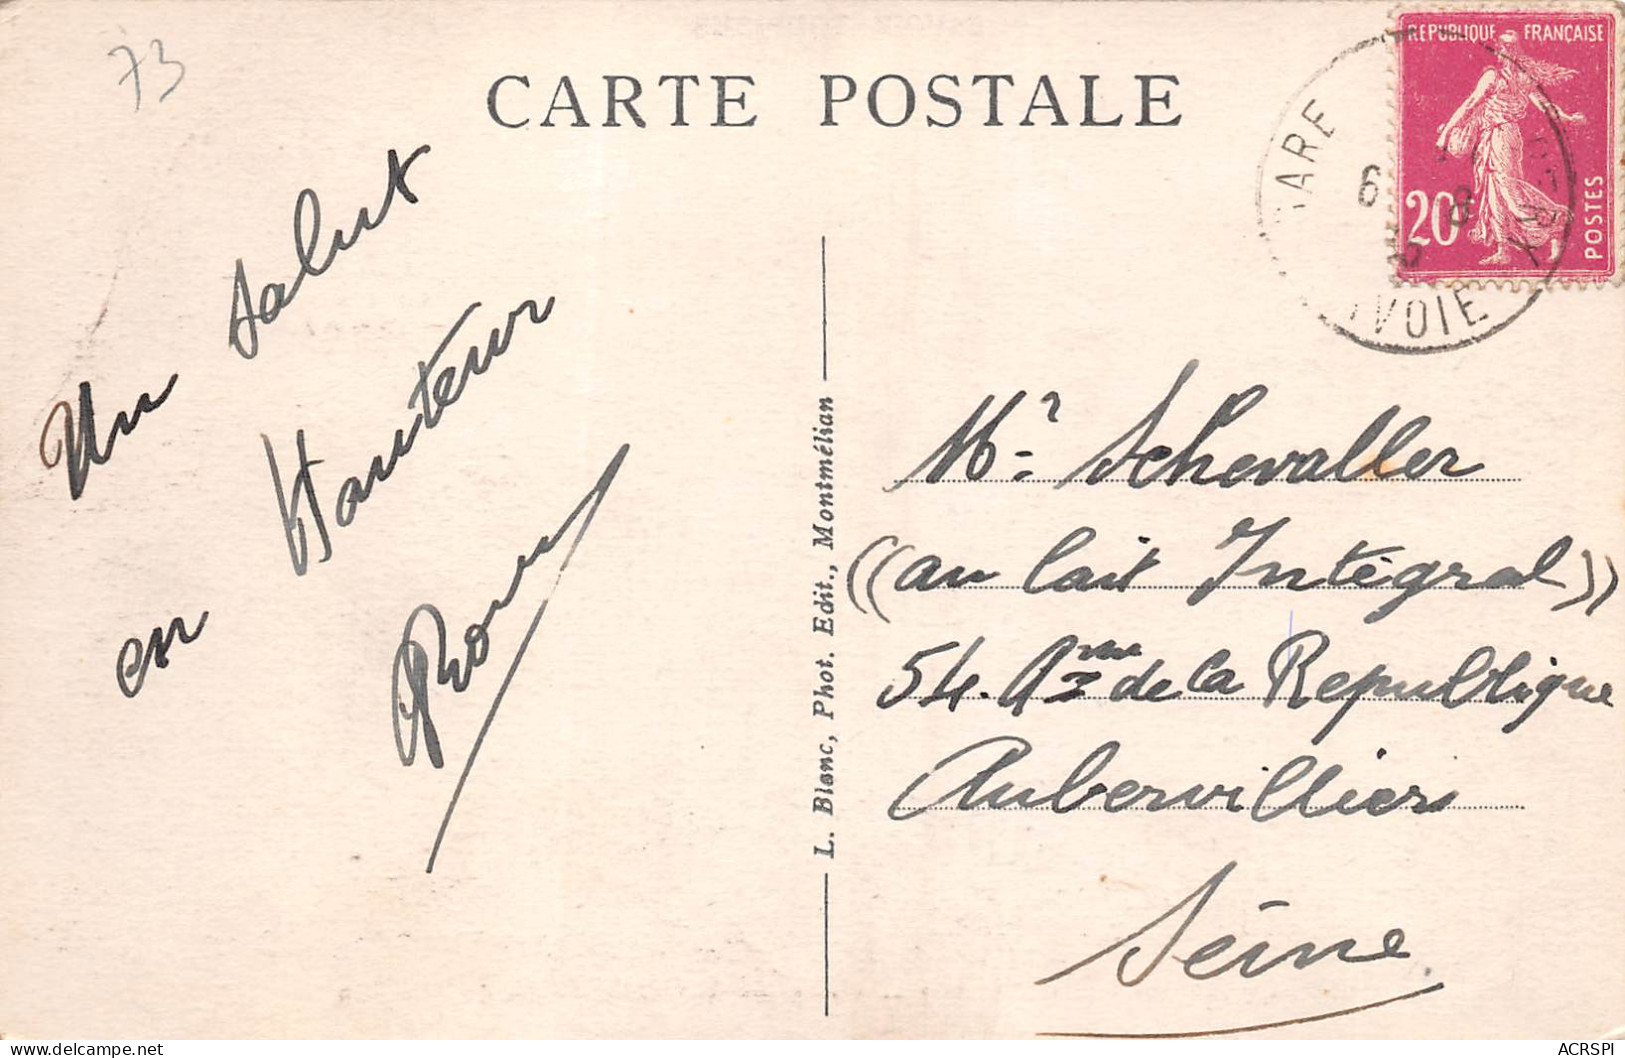 73
CARTE POSTALE
REPUBLIQUE FRANÇAISE
20c
POSTES
6
VOIE
Un salut
en Hauteur
L. Blanc, Phot. Edit., Montmélian
Mr. Schevaller
((au lait Intégral))
54. Ave de la République
Aubervilliers
Seine
ACRSPI